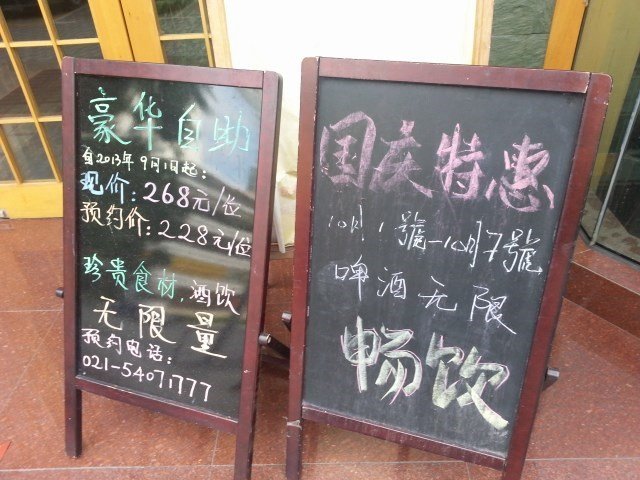 豪华自助
自2013年9月1日起：
现价：268元/位
预约价：228元/位
珍贵食材，酒饮
无限量
预约电话：
021-54071777
国庆特惠
10月1號-10月7號
啤酒无限
畅饮